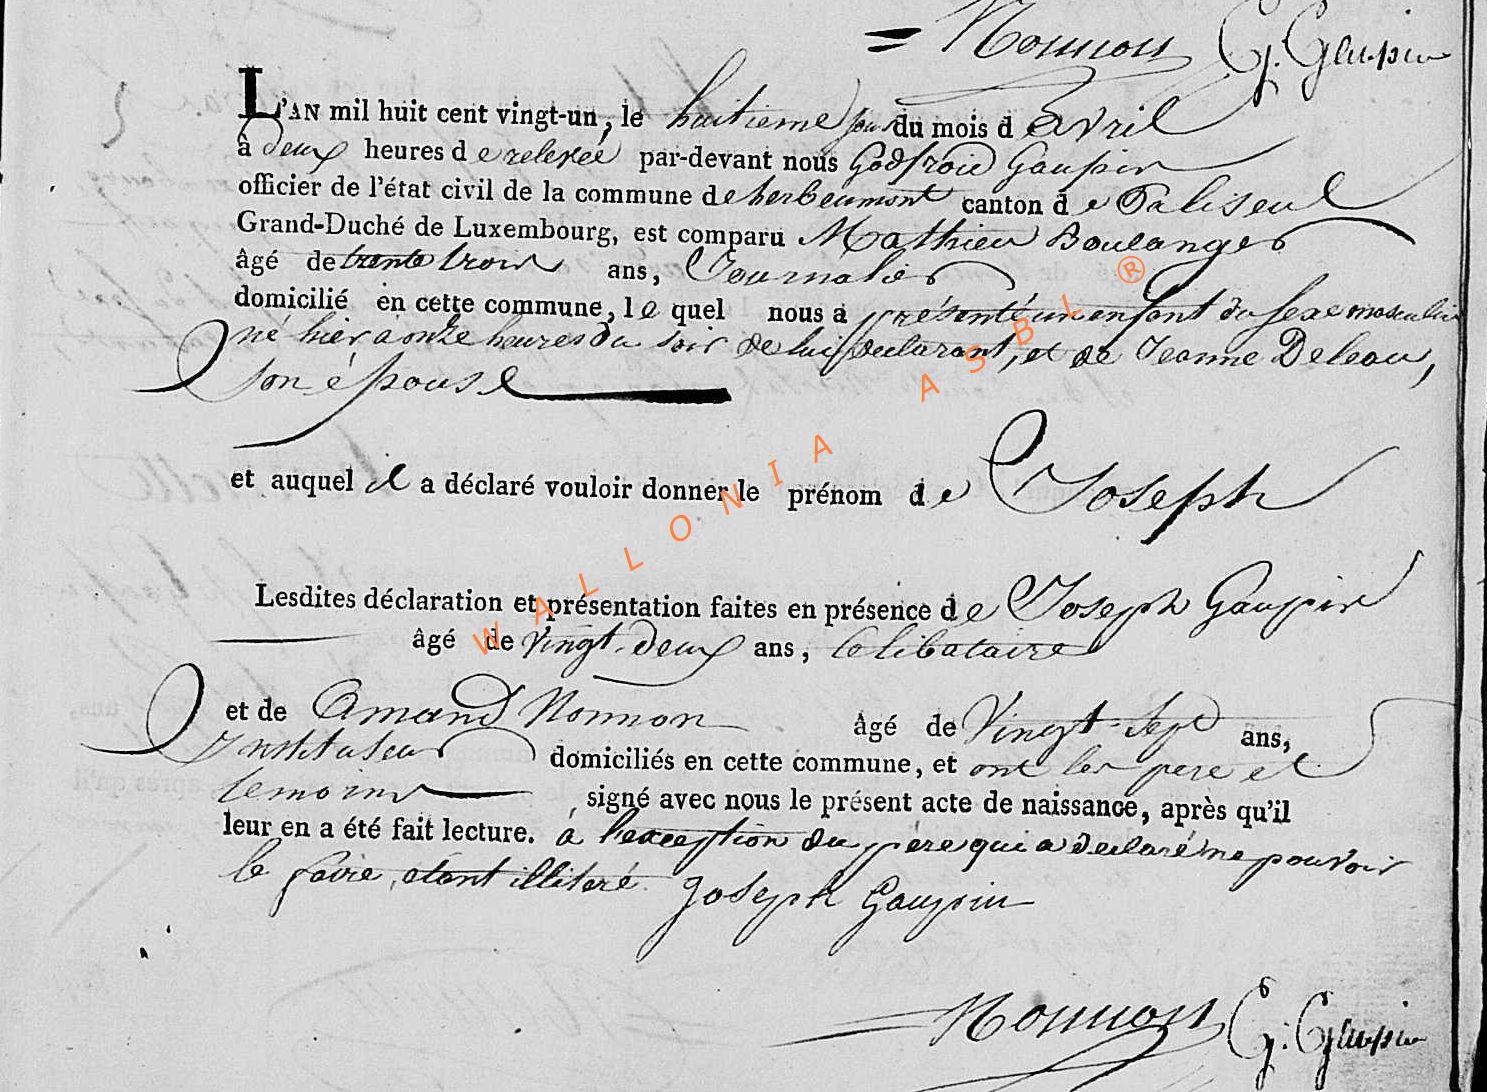 = Nonnon G. Gaupin
L'AN mil huit cent vingt-un, le huitieme jour du mois d'avril
à deux heures de relevée par-devant nous Godfroid Gaupin
officier de l'état civil de la commune de herbeumont canton de Paliseul
Grand-Duché de Luxembourg, est comparu Mathieu Boulanger
âgé de trente trois ans, Journalier
domicilié en cette commune, lequel nous a présenté un enfant du sexe masculin
né hier à onze heures du soir de lui déclarant, et de Jeanne Deleau,
son épouse
et auquel il a déclaré vouloir donner le prénom de Joseph
Lesdites déclaration et présentation faites en présence de Joseph Gaupin
âgé de vingt-deux ans, celibataire
et de Amand Nonnon âgé de Vingt-sept ans,
Instituteur domiciliés en cette commune, et ont les pere et
temoins signé avec nous le présent acte de naissance, après qu'il
leur en a été fait lecture. à l'exception du pere qui a declaré ne pouvoir
le faire, etant illiteré. Joseph Gaupin
Nonnon G. Gaupin
WALLONIA ASBL ®